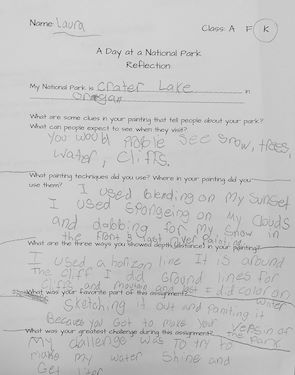 Name: Laura Class: A F K
A Day at a National Park
Reflection
My National Park is Crater Lake in
Oregan
What are some clues in your painting that tell people about your park?
What can people expect to see when they visit?
You would see snow, trees,
water, cliffs.
What painting techniques did you use? Where in your painting did you
use them? I used blending on my sunset
I used spongeing on my clouds
and dabbing for my snow in
the front & last
What are the three ways you showed depth (distance) in your painting?
I used a horizon line It is around
The cliff I did ground lines for
Cliffs and did color on
water
What was your favorite part of this assignment?
Sketching it out and painting it
you got to make your
Park
What was your greatest challenge during this assignment?
My challenge was to try to
make my water shine and
Get